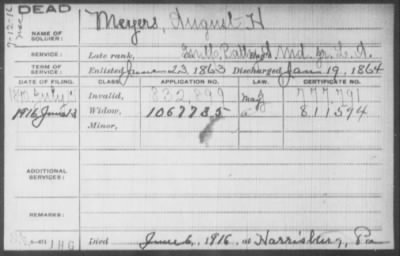 DEAD
7-12-16
NAME OF SOLDIER: Meyers, August H
SERVICE: Late rank, Batt Md.
TERM OF SERVICE: Enlisted June 23, 1863 Discharged Jan 19, 1864
DATE OF FILING. CLASS. APPLICATION NO. LAW. CERTIFICATE NO.
July Invalid, 832,899
1916 June 13 Widow, 1067735 811,594
Minor,
ADDITIONAL SERVICES:
REMARKS:
JHG Died June 6, 1916, at Harrisburg, Pa